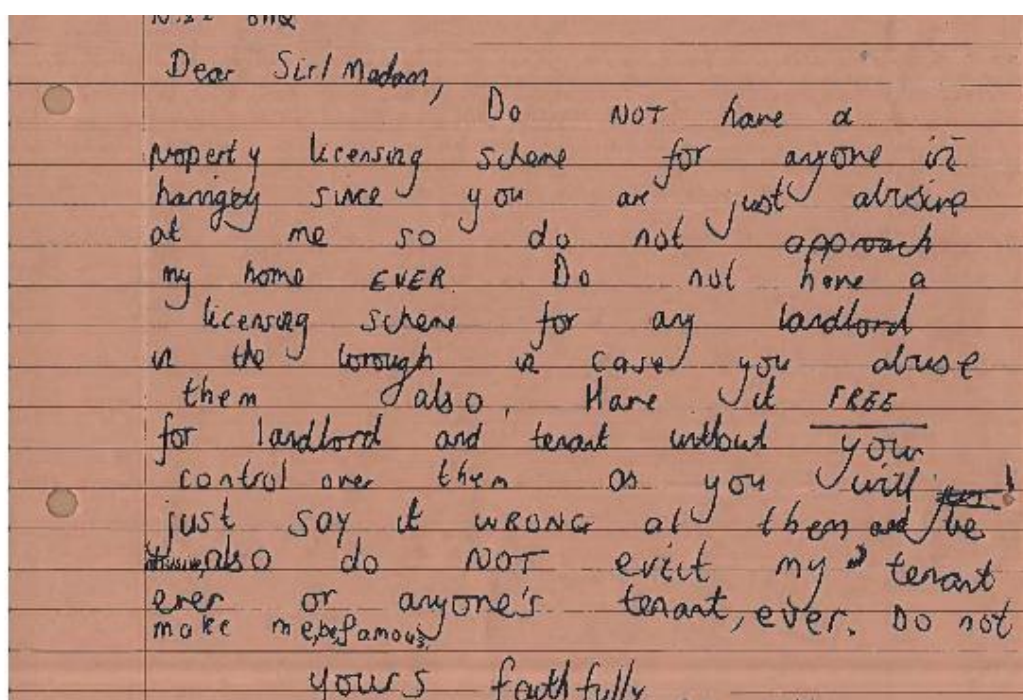 Dear Sir/Madam,
Do NOT have a
property licensing scheme for anyone in
haringey since you are just abusive
at me so do not approach
my home EVER. Do not have a
licensing scheme for any landlord
in the borough in case you abuse
them also. Have it FREE
for landlord and tenant without your
control over them as you will
just say it WRONG at them and be
abusive, also do NOT evict my tenant
ever or anyone's tenant, ever. Do not
make me, be famous.
yours faithfully